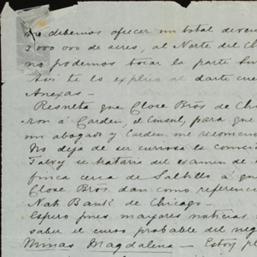 no debemos ofecer un total de
2.000.000 de acres, al Norte del
no podemos tocar la parte
te lo explica al darte
Anexas.—
Resulta que Close Bros de Chi
ron á Carden, el Consul, para que
mi abogado y Carden me recomen
No deja de ser curiosa la
se trataria del examen de
finca cerca de Saltillo á
Close Bros. dan como referenci
Nat. Bank de Chicago.—
Espero fines margares noticias
saber el curso probable del neg
Minas Magdalena — Estoy